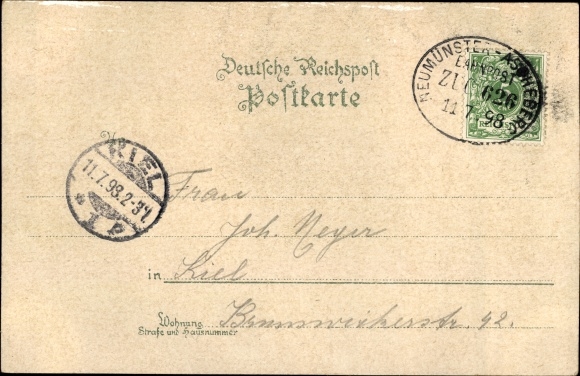 Deutsche Reichspost
Postkarte
NEUMÜNSTER-ASCHEBERG
BAHNPOST
ZUG 626
11 7 98
KIEL
11.7.98.2-3N.
Frau
Joh. Meyer
in Kiel
Wohnung Brunswiekerstr. 42.
Strafse und Hausnummer